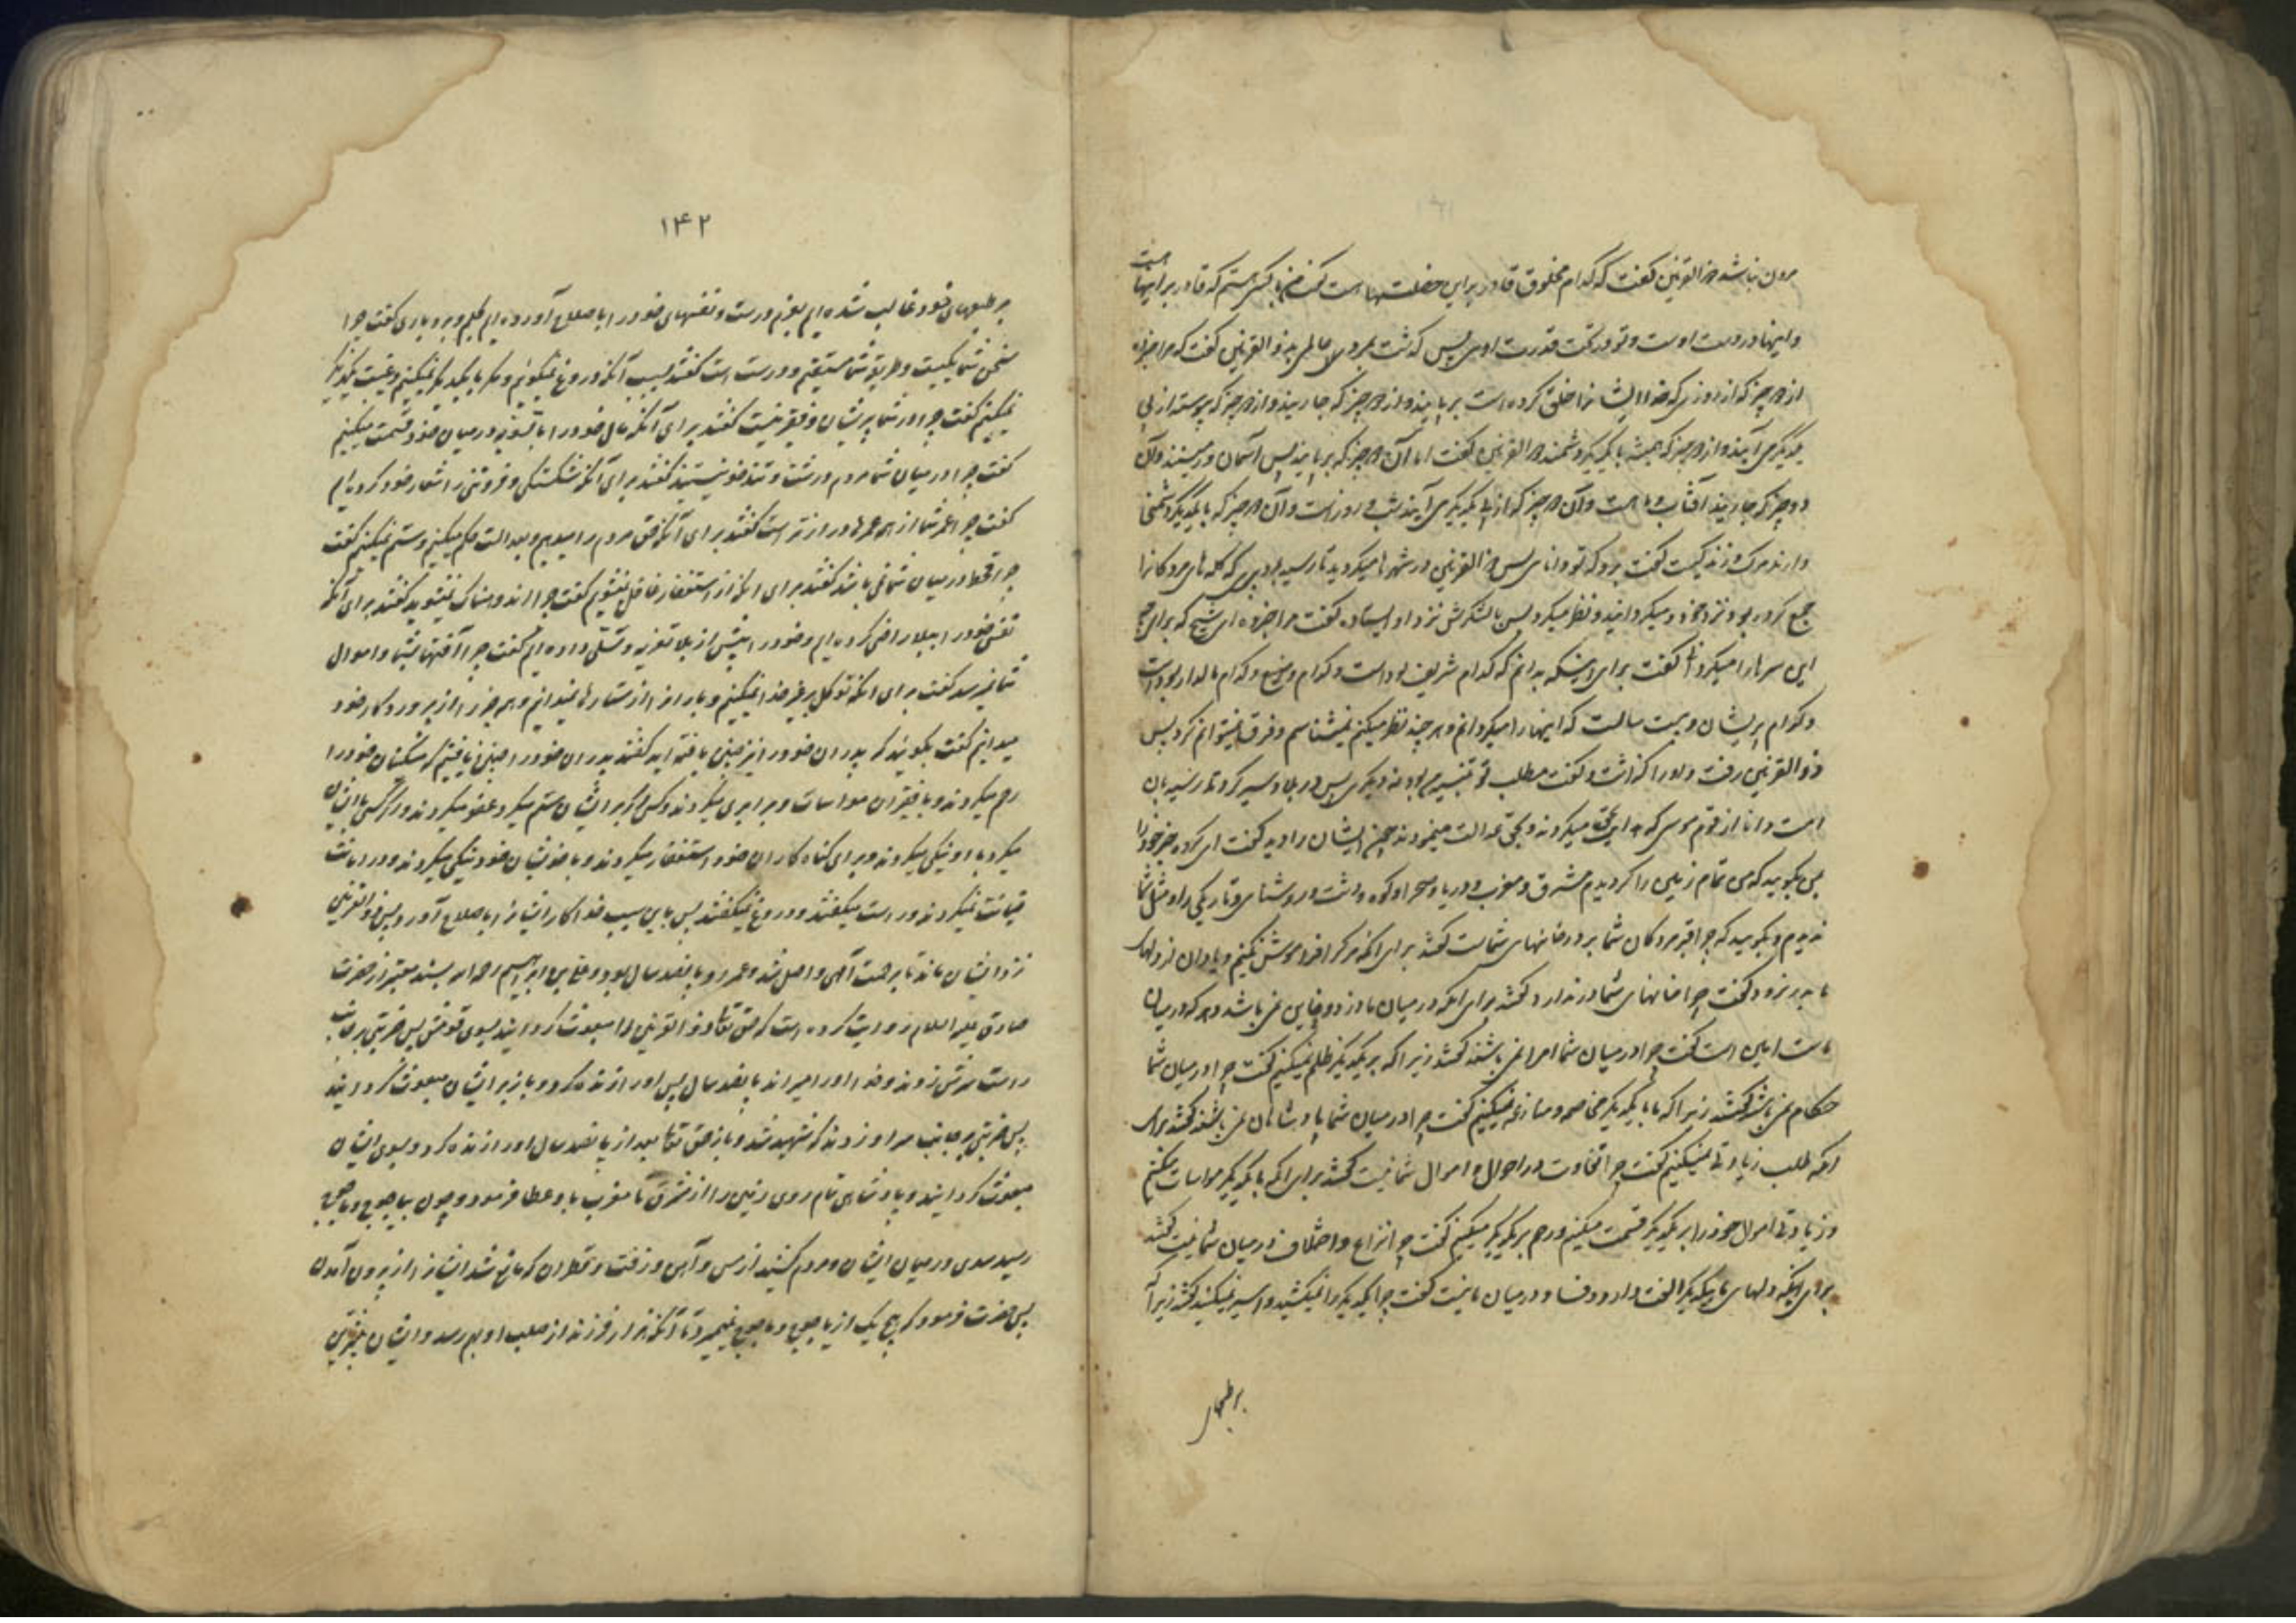 مردن نباشد ذوالقرنین گفت که کدام مخلوق قادر بر این خصلتها است گفت من با کسی هستم که قادر بر اینها است
و اینها در دست اوست و تو در تحت قدرت اوئی پس گذشت بمردی عالمی بذوالقرنین گفت که مرا خبر ده
از دو چیز که از روزی که خدا ایشانرا خلق کرده است بر پایند و از دو چیز که جاریند و از دو چیز که پیوسته از پی
یکدیگر می آیند و از دو چیز که همیشه با یکدیگر دشمنند ذوالقرنین گفت اما آن دو چیز که بر پایند پس آسمان و زمینند و آن
دو چیز که جاریند آفتاب و ماه است و آن دو چیز که از پی یکدیگر می آیند شب و روز است و آن دو چیز که با یکدیگر دشمنی
دارند مرگ و زندگیست گفت برو که تو دانائی پس ذوالقرنین در شهرها میگردید تا رسید بمردپیری که کله های مردکانرا
جمع کرده بود نزد خود و میگردانید و نظر میکرد پس با لشکرش نزد او ایستاد و گفت مرا خبر ده ای شیخ که برای چه
این سرها را میگردانی گفت برای اینکه بدانم که کدام شریف بوداست و کدام وضیع و کدام مالدار بوداست
و کدام پریشان و بیست سالست که اینها را میگردانم و هر چند نظر میکنم نمیشناسم و فرق نمیتوانم کرد پس
ذوالقرنین رفت و او را گذاشت و گفت مطلب تو تنبیه من بود نه دیگری پس در بلاد سیر کرد تا رسید بان
امت دانا از قوم موسی که هدایت بحق میکردند و بحق عدالت مینمودند چون ایشان را دید گفت ای گروه خبر خود را
بمن بگوئید که من تمام زمین را گردیدم مشرق و مغرب و دریا و صحرا و کوه و دشت و روشنائی و تاریکی را و مثل شما
ندیدم بگوئید که چرا قبر مردگان شما بر در خانهای شماست گفتند برای آنکه مرگ را فراموش نکنیم و یاد آن از دلهای
ما بدر نرود گفت چرا خانهای شما در ندارد گفتند برای آنکه در میان ما دزد و خاین نمیباشد و هر که در میان
ماست امین است گفت چرا در میان شما امرا نمیباشند گفتند زیرا که بر یکدیگر ظلم نمیکنیم گفت چرا در میان شما
حکام نمیباشند گفتند زیرا که با یکدیگر مخاصمه و منازعه نمیکنیم گفت چرا در میان شما پادشاهان نمیباشند گفتند برای
آنکه طلب زیادتی نمیکنیم گفت چرا تفاوت در احوال و اموال شما نیست گفتند برای آنکه با یکدیگر مواسات میکنیم
و زیادتی اموال خود را بر یکدیگر قسمت میکنیم و رحم بر یکدیگر میکنیم گفت چرا نزاع و اختلاف در میان شما نیست گفتند
برای اینکه دلهای ما با یکدیگر الفت دارد و فساد در میان ما نیست گفت چرا یکدیگر را نمیکشید و اسیر نمیکنید گفتند زیرا که
بر طبعهای
۱۴۲
بر طبعهای خود غالب شده ایم بعزم درست و نفسهای خود را با صلاح آورده ایم بحلم و بردباری گفت چرا
سخن شما یکیست و طریقه شما مستقیم و درست است گفتند بسبب آنکه دروغ نمیگوئیم و مکر با یکدیگر نمیکنیم و غیبت یکدیگر
نمیکنیم گفت چرا در شما پریشان و فقیر نیست گفتند برای آنکه مال خود را بالسویه در میان خود قسمت میکنیم
گفت چرا در میان شما مردم درشت و تندخو نیستند گفتند برای آنکه شکستگی و فروتنی را شعار خود کرده ایم
گفت چرا عمر شما از همه عمرها درازتر است گفتند برای آنکه حق مردم را میدهیم و بعدالت حکم میکنیم و ستم نمیکنیم گفت
چرا قحط در میان شما نمی باشد گفتند برای آنکه از استغفار غافل نمیشویم گفت چرا اندوهناک نمیشوید گفتند برای آنکه
نفس خود را ببلا راضی کرده ایم و خود را پیش از بلا تعزیه و تسلی داده ایم گفت چرا آفتها بشما و اموال
شما نمیرسد گفتند برای آنکه توکل بر غیر خدا نمیکنیم و باران را از ستارها نمیدانیم و همه چیز را از پروردگار خود
میدانیم گفت بگوئید که پدران خود را نیز چنین یافته اید گفتند پدران خود را چنین یافتیم که مسکینان خود را
رحم میکردند و با فقیران مواسات و برابری میکردند و کسی که بر ایشان ستم میکرد عفو میکردند و اگر کسی با ایشان بد
میکرد با او نیکی میکردند و برای گناه کاران خود استغفار میکردند و با خویشان خود نیکی میکردند و در امانت
خیانت نمیکردند و راست میگفتند و دروغ نمیگفتند پس باین سبب خدا کار ایشانرا با صلاح آورد پس ذوالقرنین
نزد ایشان ماند تا برحمت الهی واصل شد و عمر او پانصد سال بود و علی بن ابراهیم رحمه الله بسند معتبر از حضرت
صادق علیه السلام روایت کرده است که حق تعالی ذوالقرنین را مبعوث گردانید بسوی قومش پس ضربتی بر جانب
راست سرش زدند و خدا او را میراند پانصد سال پس او را زنده کرد و باز بر ایشان مبعوث گردانید
پس ضربتی بر جانب سر او زدند که شهید شد و باز حق تعالی بعد از پانصد سال او را زنده کرد و بسوی ایشان
مبعوث گردانید و پادشاهی تمام روی زمین را از مشرق تا مغرب باو عطا فرمود و چون بیاجوج و ماجوج
رسید سدی در میان ایشان و مردم کشید از مس و آهن و زفت و قطران که مانع شد ایشانرا از بیرون آمدن
پس حضرت فرمود که هیچ یک از یاجوج و ماجوج نمیمیرد تا آنکه هزار فرزند از صلب او بهم رسد و ایشان بیشترین